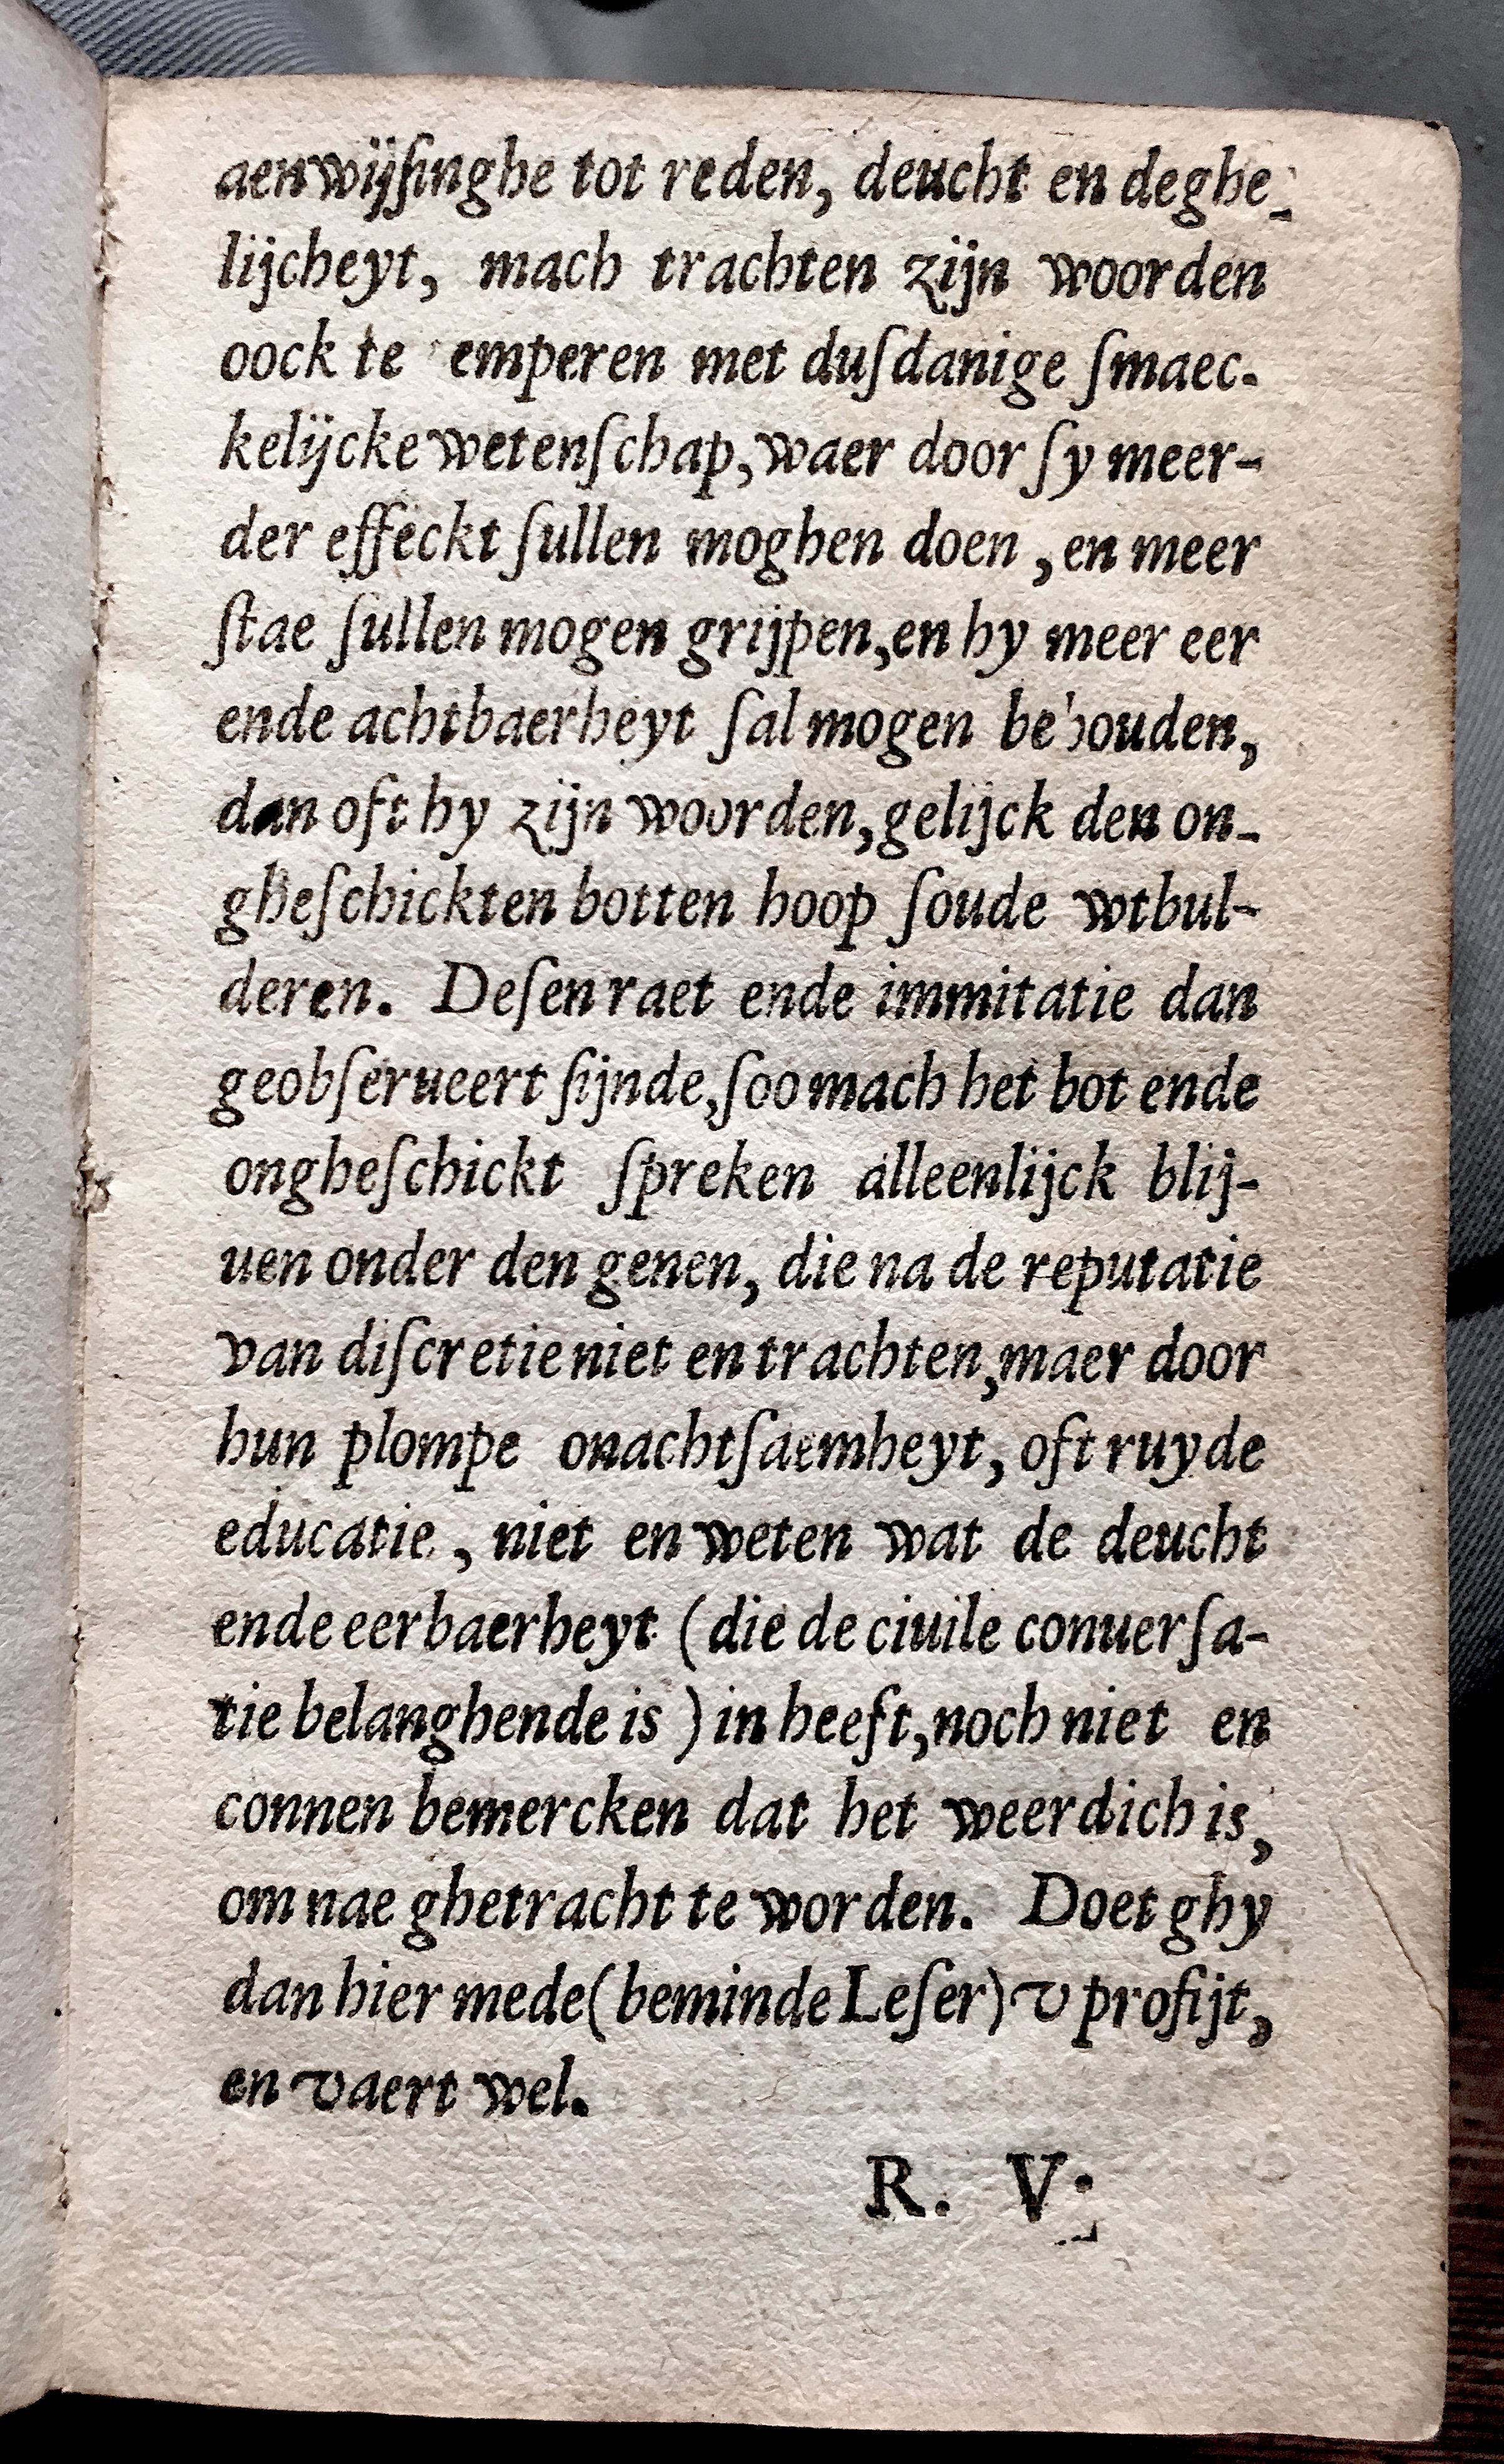 aenwijſinghe tot reden, deucht en deghe-
lijcheyt, mach trachten zijn woorden
oock te emperen met duſdanige ſmaec-
kelijcke wetenſchap, waer door ſy meer-
der effeckt ſullen moghen doen, en meer
ſtae ſullen mogen grijpen, en hy meer eer
ende achtbaerheyt ſal mogen behouden,
dan oft hy zijn woorden, gelijck den on-
gheſchickten botten hoop ſoude wtbul-
deren. Deſen raet ende immitatie dan
geobſerueert ſijnde, ſoo mach het bot ende
ongheſchickt ſpreken alleenlijck blij-
uen onder den genen, die na de reputatie
van diſcretie niet en trachten, maer door
hun plompe onachtſaemheyt, oft ruyde
educatie, niet en weten wat de deucht
ende eerbaerheyt (die de ciuile conuerſa-
tie belanghende is) in heeft, noch niet en
connen bemercken dat het weerdich is,
om nae ghetracht te worden. Doet ghy
dan hier mede (beminde Leſer) v profijt,
en vaert wel.
R. V.